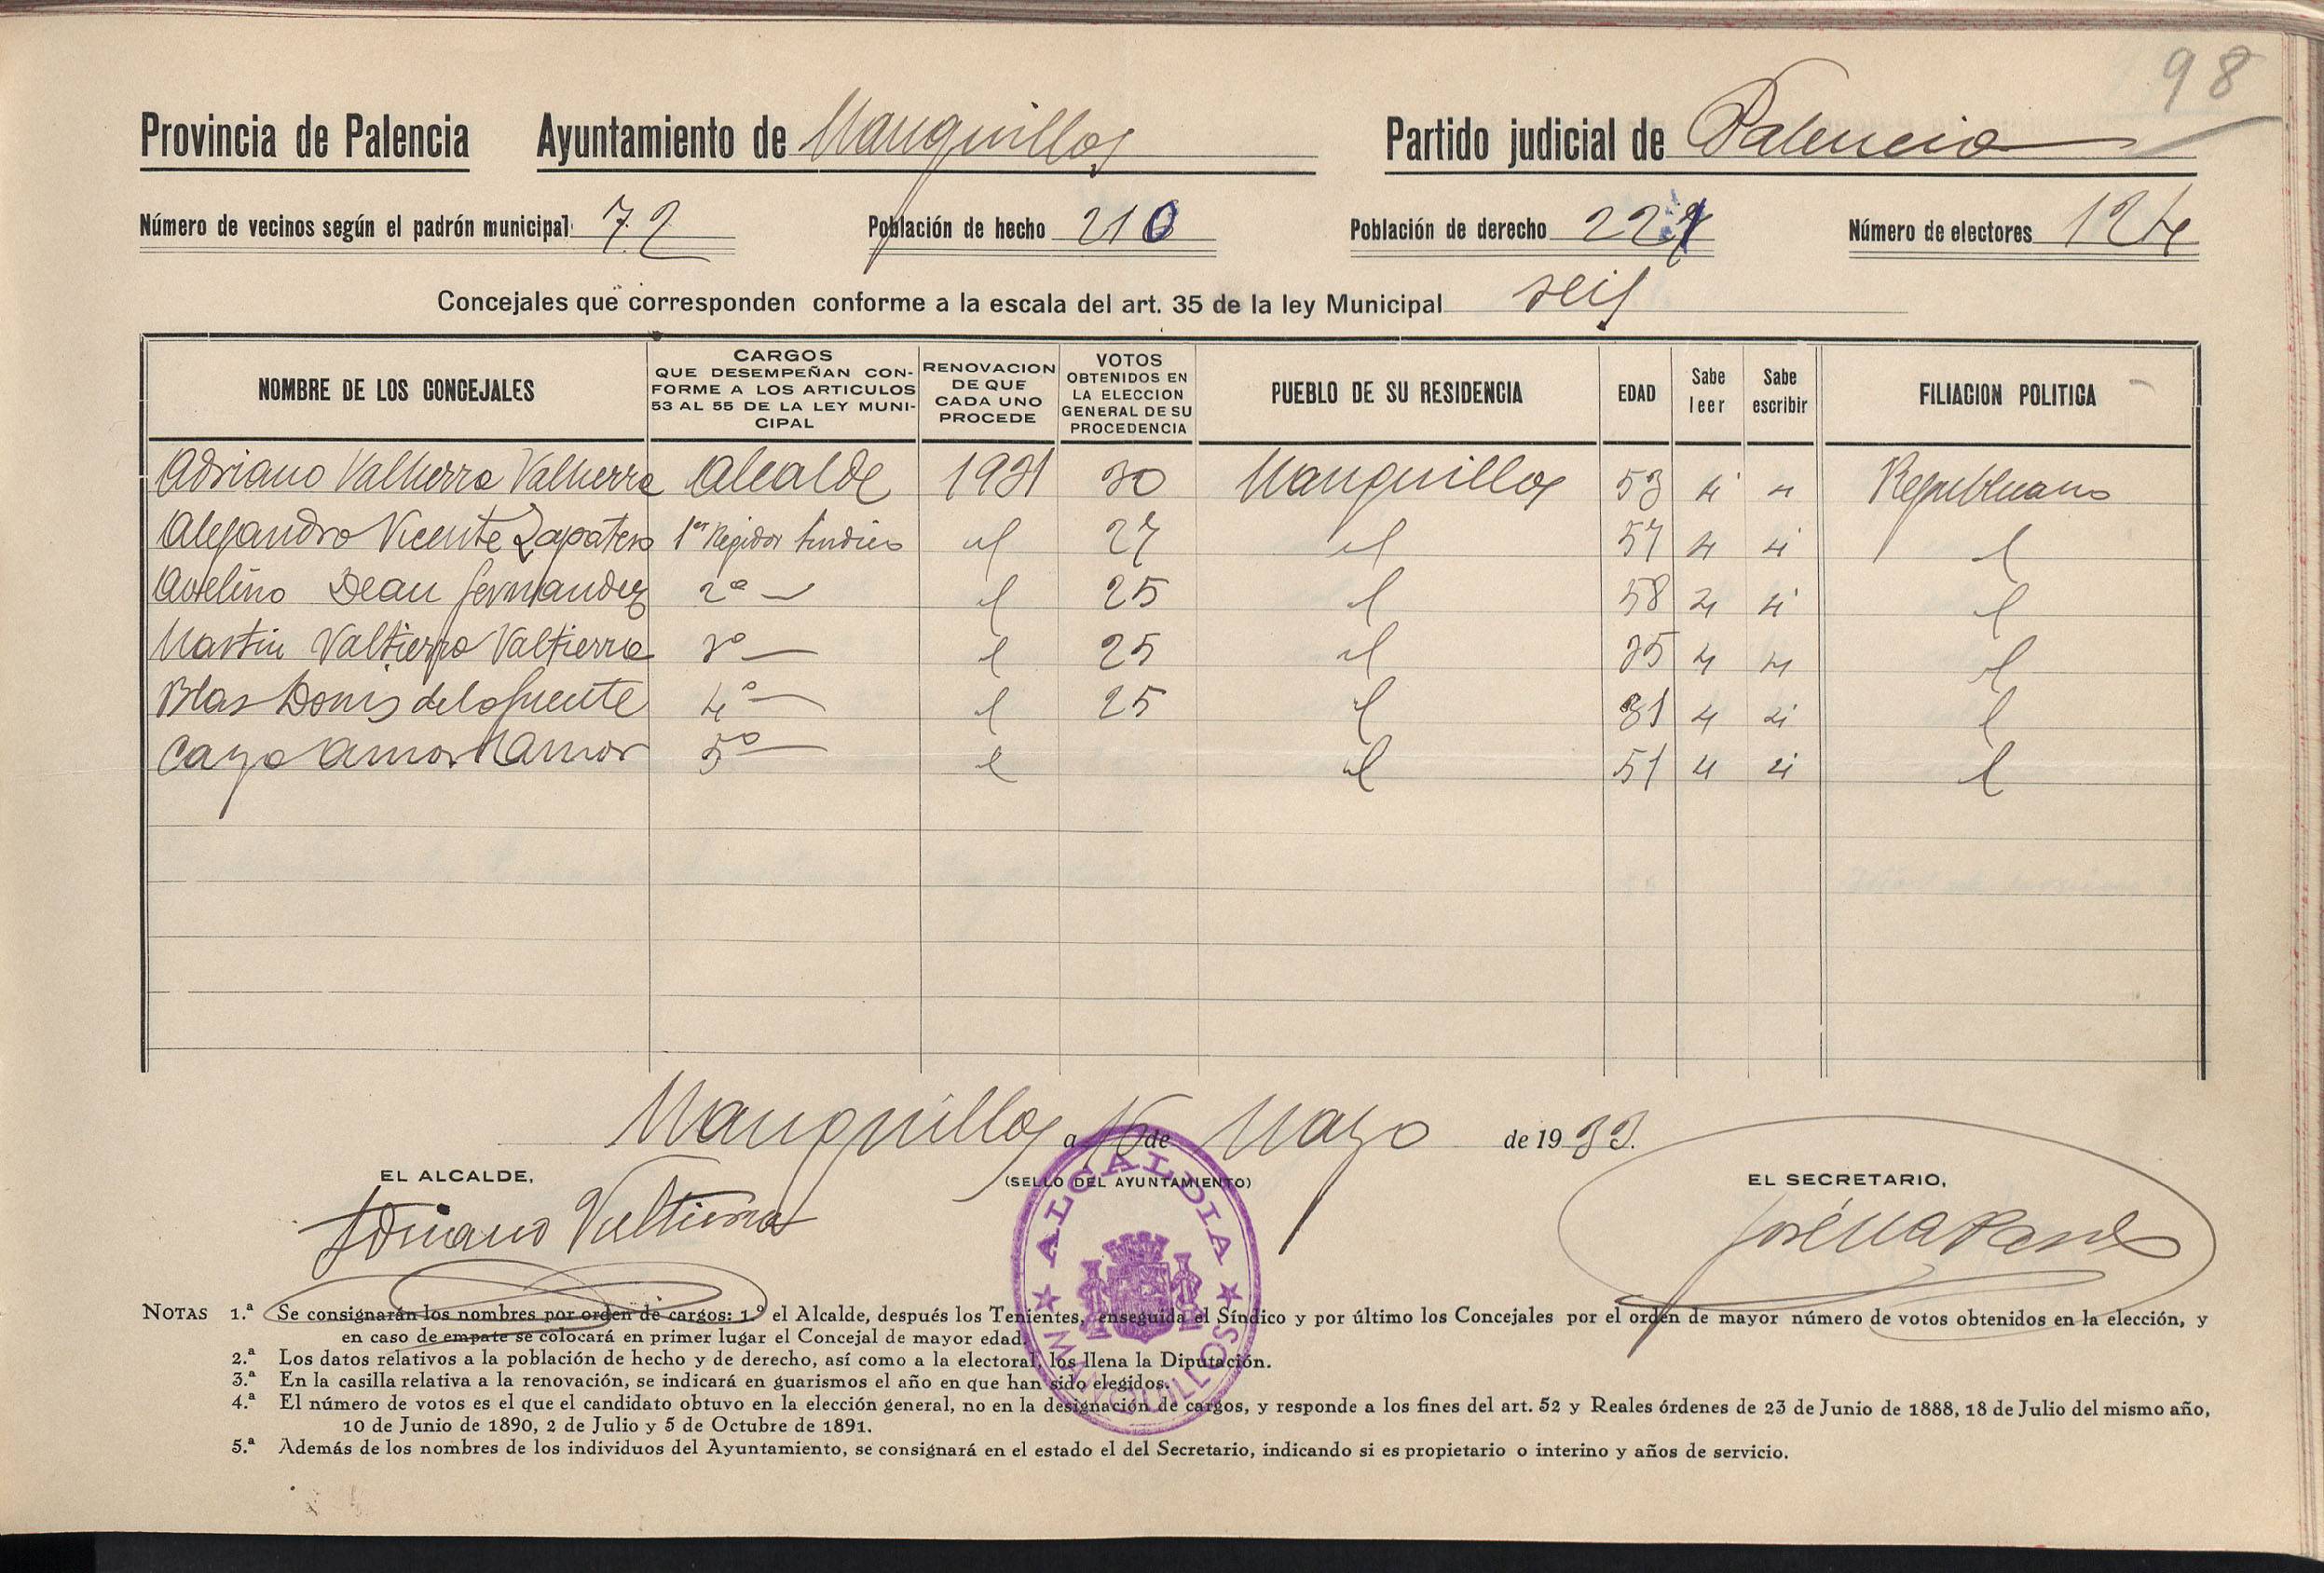 98
Provincia de Palencia Ayuntamiento de Manquillos Partido judicial de Palencia
Número de vecinos según el padrón municipal 72 Población de hecho 210 Población de derecho 221 Número de electores 124
Concejales que corresponden conforme a la escala del art. 35 de la ley Municipal seis
NOMBRE DE LOS CONCEJALES CARGOS QUE DESEMPEÑAN CONFORME A LOS ARTICULOS 53 AL 55 DE LA LEY MUNICIPAL RENOVACION DE QUE CADA UNO PROCEDE VOTOS OBTENIDOS EN LA ELECCION GENERAL DE SU PROCEDENCIA PUEBLO DE SU RESIDENCIA EDAD Sabe leer Sabe escribir FILIACION POLITICA
Adriano Valtierra Valtierra Alcalde 1931 30 Manquillos 53 si si Republicano
Alejandro Vicente Zapatero 1er Regidor Sindico id 27 id 57 si si id
Avelino Dean Fernandez 2º — id 25 id 58 si si id
Martin Valtierra Valtierra 3º — id 25 id 35 si si id
Blas Donis de la fuente 4º — id 25 id 31 si si id
Cayo Amor Amor 5º — id id 51 si si id
Manquillos a 16 de Mayo de 1933.
EL ALCALDE, (SELLO DEL AYUNTAMIENTO) EL SECRETARIO,
Adriano Valtierra José
★ ALCALDIA ★ MANQUILLOS
NOTAS 1.ª Se consignarán los nombres por orden de cargos: 1.º el Alcalde, después los Tenientes, enseguida el Síndico y por último los Concejales por el orden de mayor número de votos obtenidos en la elección, y
en caso de empate se colocará en primer lugar el Concejal de mayor edad.
2.ª Los datos relativos a la población de hecho y de derecho, así como a la electoral, los llena la Diputación.
3.ª En la casilla relativa a la renovación, se indicará en guarismos el año en que han sido elegidos.
4.ª El número de votos es el que el candidato obtuvo en la elección general, no en la designación de cargos, y responde a los fines del art. 52 y Reales órdenes de 23 de Junio de 1888, 18 de Julio del mismo año,
10 de Junio de 1890, 2 de Julio y 5 de Octubre de 1891.
5.ª Además de los nombres de los individuos del Ayuntamiento, se consignará en el estado el del Secretario, indicando si es propietario o interino y años de servicio.